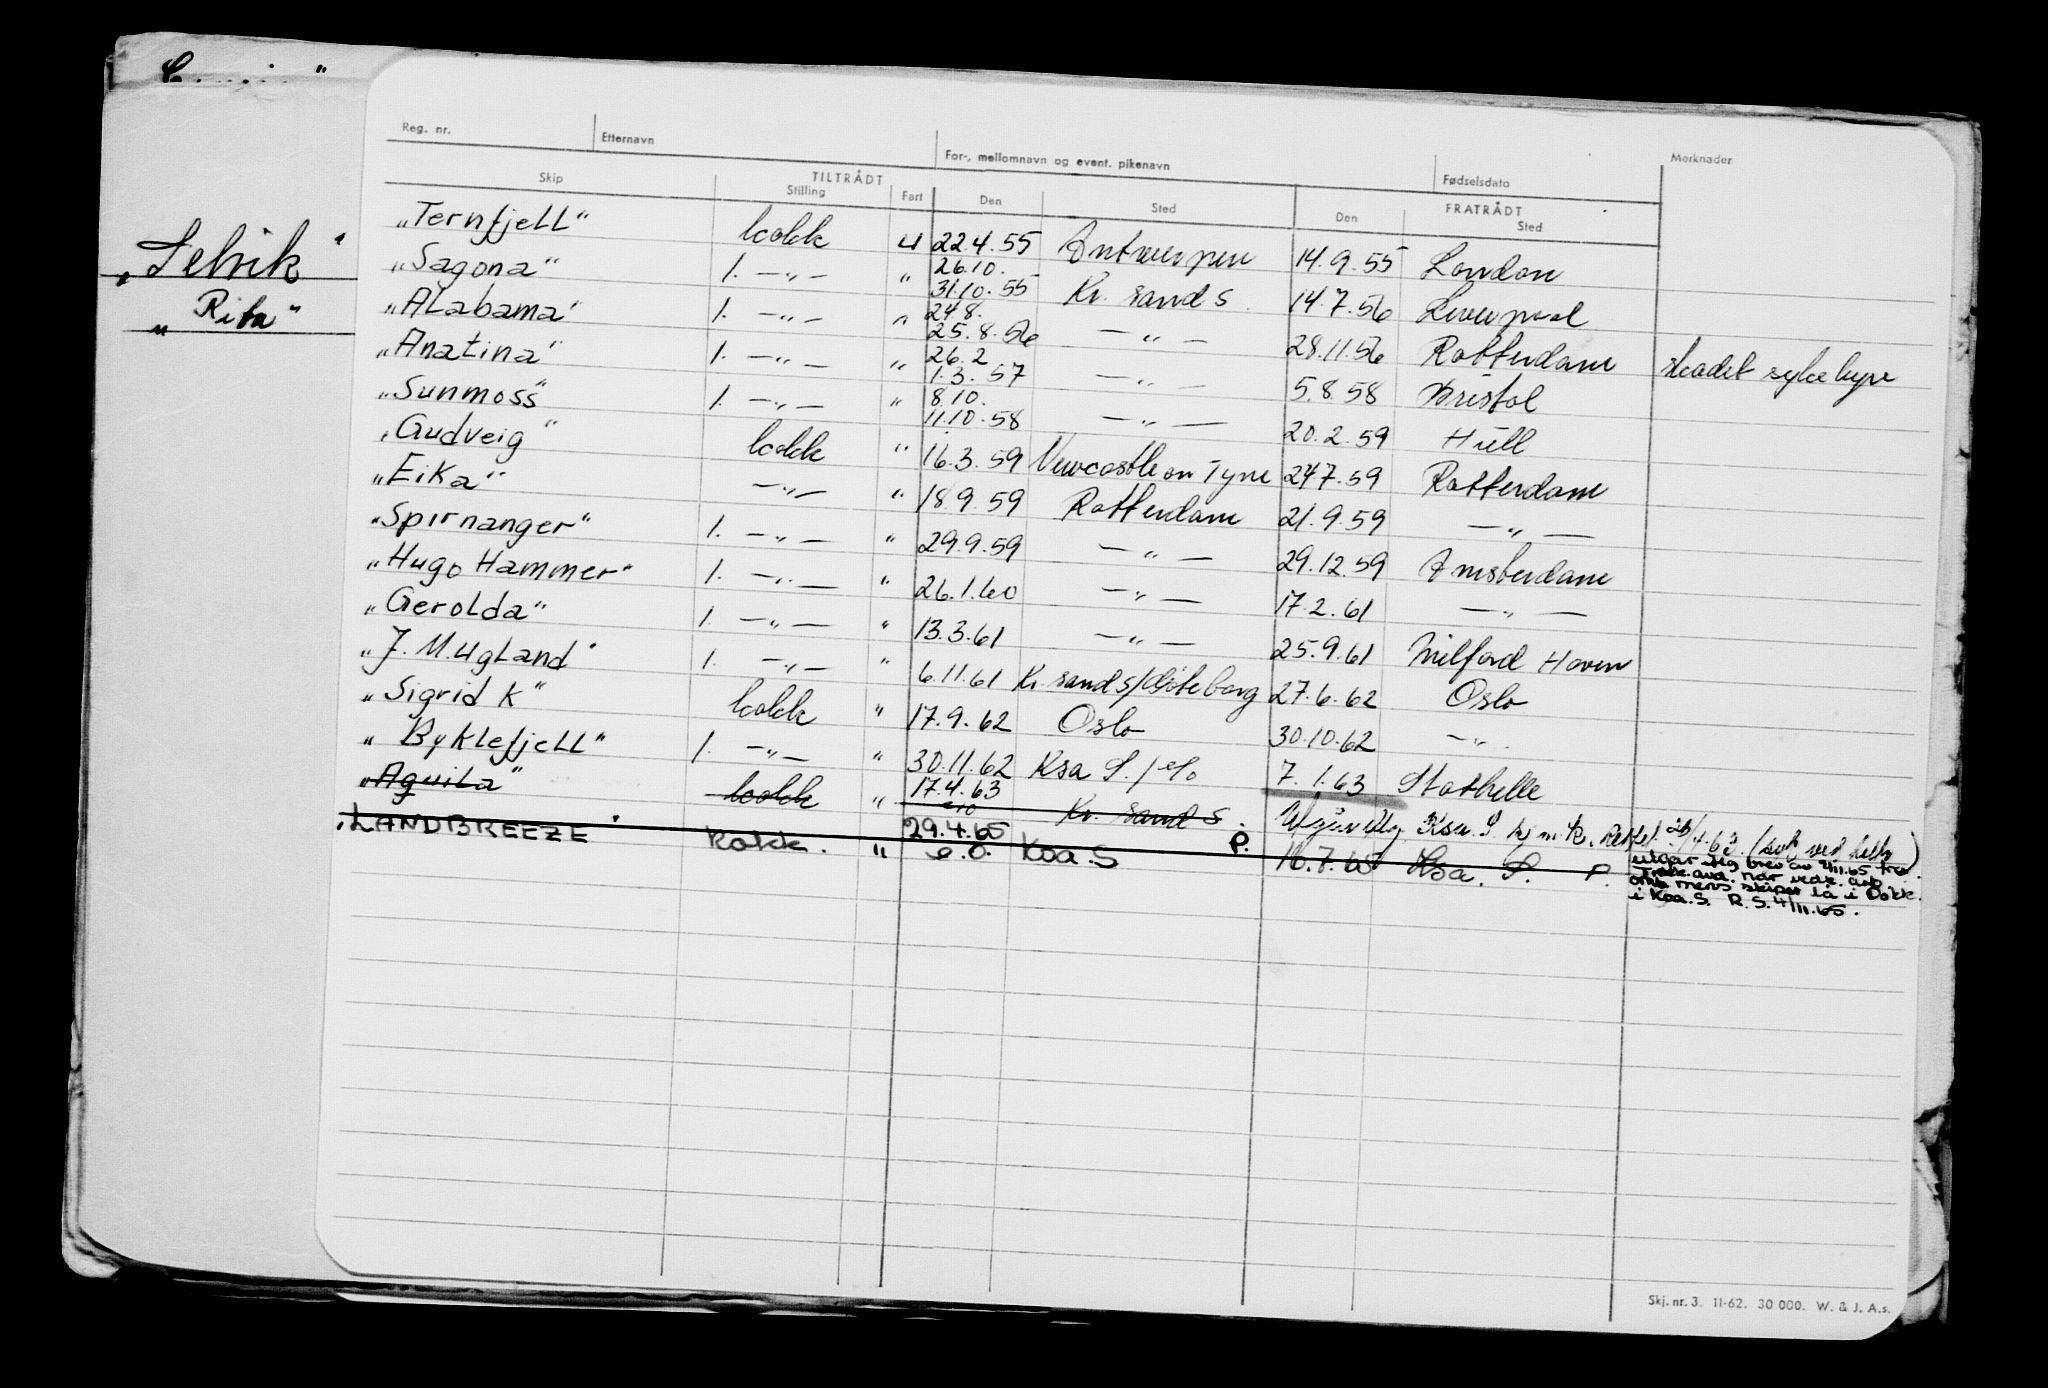 "Selvik"
"Rita"
Reg. nr. Etternavn For-, mellomnavn og event. pikenavn Fødselsdato Merknader
Skip TILTRÅDT FRATRÅDT
Stilling Fart Den Sted Den Sted
"Ternfjell" kokk u 22.4.55 Antwerpen 14.9.55 London
"Sagona" 1. —"— " 26.10. 31.10.55 Kr. sand S 14.7.56 Liverpool
"Alabama" 1. —"— " 24.8. 25.8.56 —"— 28.11.56 Rotterdam skadet
"Anatina" 1. —"— " 26.2 1.3.57 —"— 5.8.58 Bristol
"Sunmoss" 1. —"— " 8.10. 11.10.58 —"— 20.2.59 Hull
"Gudveig" kokk " 16.3.59 Newcastle on Tyne 24.7.59 Rotterdam
"Eika" —"— " 18.9.59 Rotterdam 21.9.59 —"—
"Spirnanger" 1. —"— " 29.9.59 —"— 29.12.59 Amsterdam
"Hugo Hammer" 1. —"— " 26.1.60 —"— 17.2.61 —"—
"Gerolda" 1. —"— " 13.3.61 —"— 25.9.61 Milford Haven
"J. M. Ugland" 1. —"— " 6.11.61 Kr. sand S/Göteborg 27.6.62 Oslo
"Sigrid K" kokk " 17.9.62 Oslo 30.10.62 —"—
"Byklefjell" 1. —"— " 30.11.62 Ksa S. / e/o 7.1.63 Stathelle
"Aquila" kokk " 17.4.63 Kr. sand S. Utgår iflg. Ksa. S.
"LANDBREEZE" kokk. " 29.4.65 e.o. Ksa. S P. 16.7.65 Ksa. S. P.
utgår iflg brev av 2/11.65
mens skipet lå i Dokk.
i Ksa. S. R. S. 4/11.65.
Skj. nr. 3. 11-62. 30 000. W. & J. A.s.